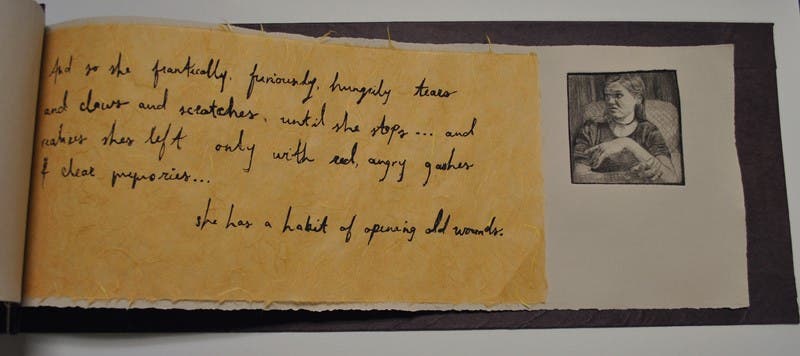 And so she frantically, furiously, hungrily tears
and claws and scratches, until she stops... and
realises shes left only with red, angry gashes
& clear memories...
she has a habit of opening old wounds.